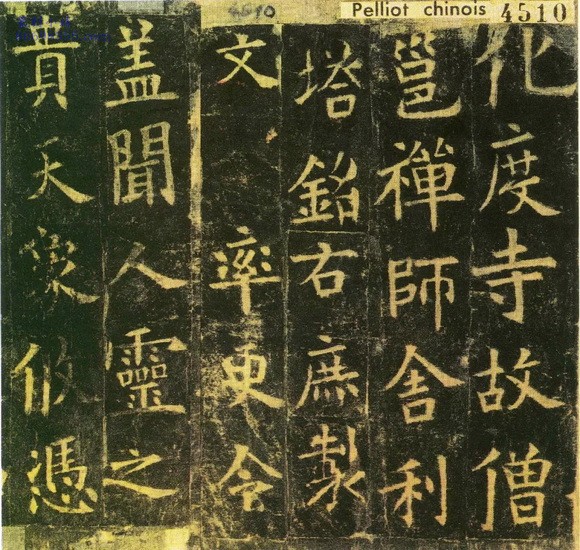 Pelliot chinois 4510
4510
化度寺故僧
邕禪師舎利
塔銘右庶製
文 率更令
盖聞人靈之
貴天象攸憑